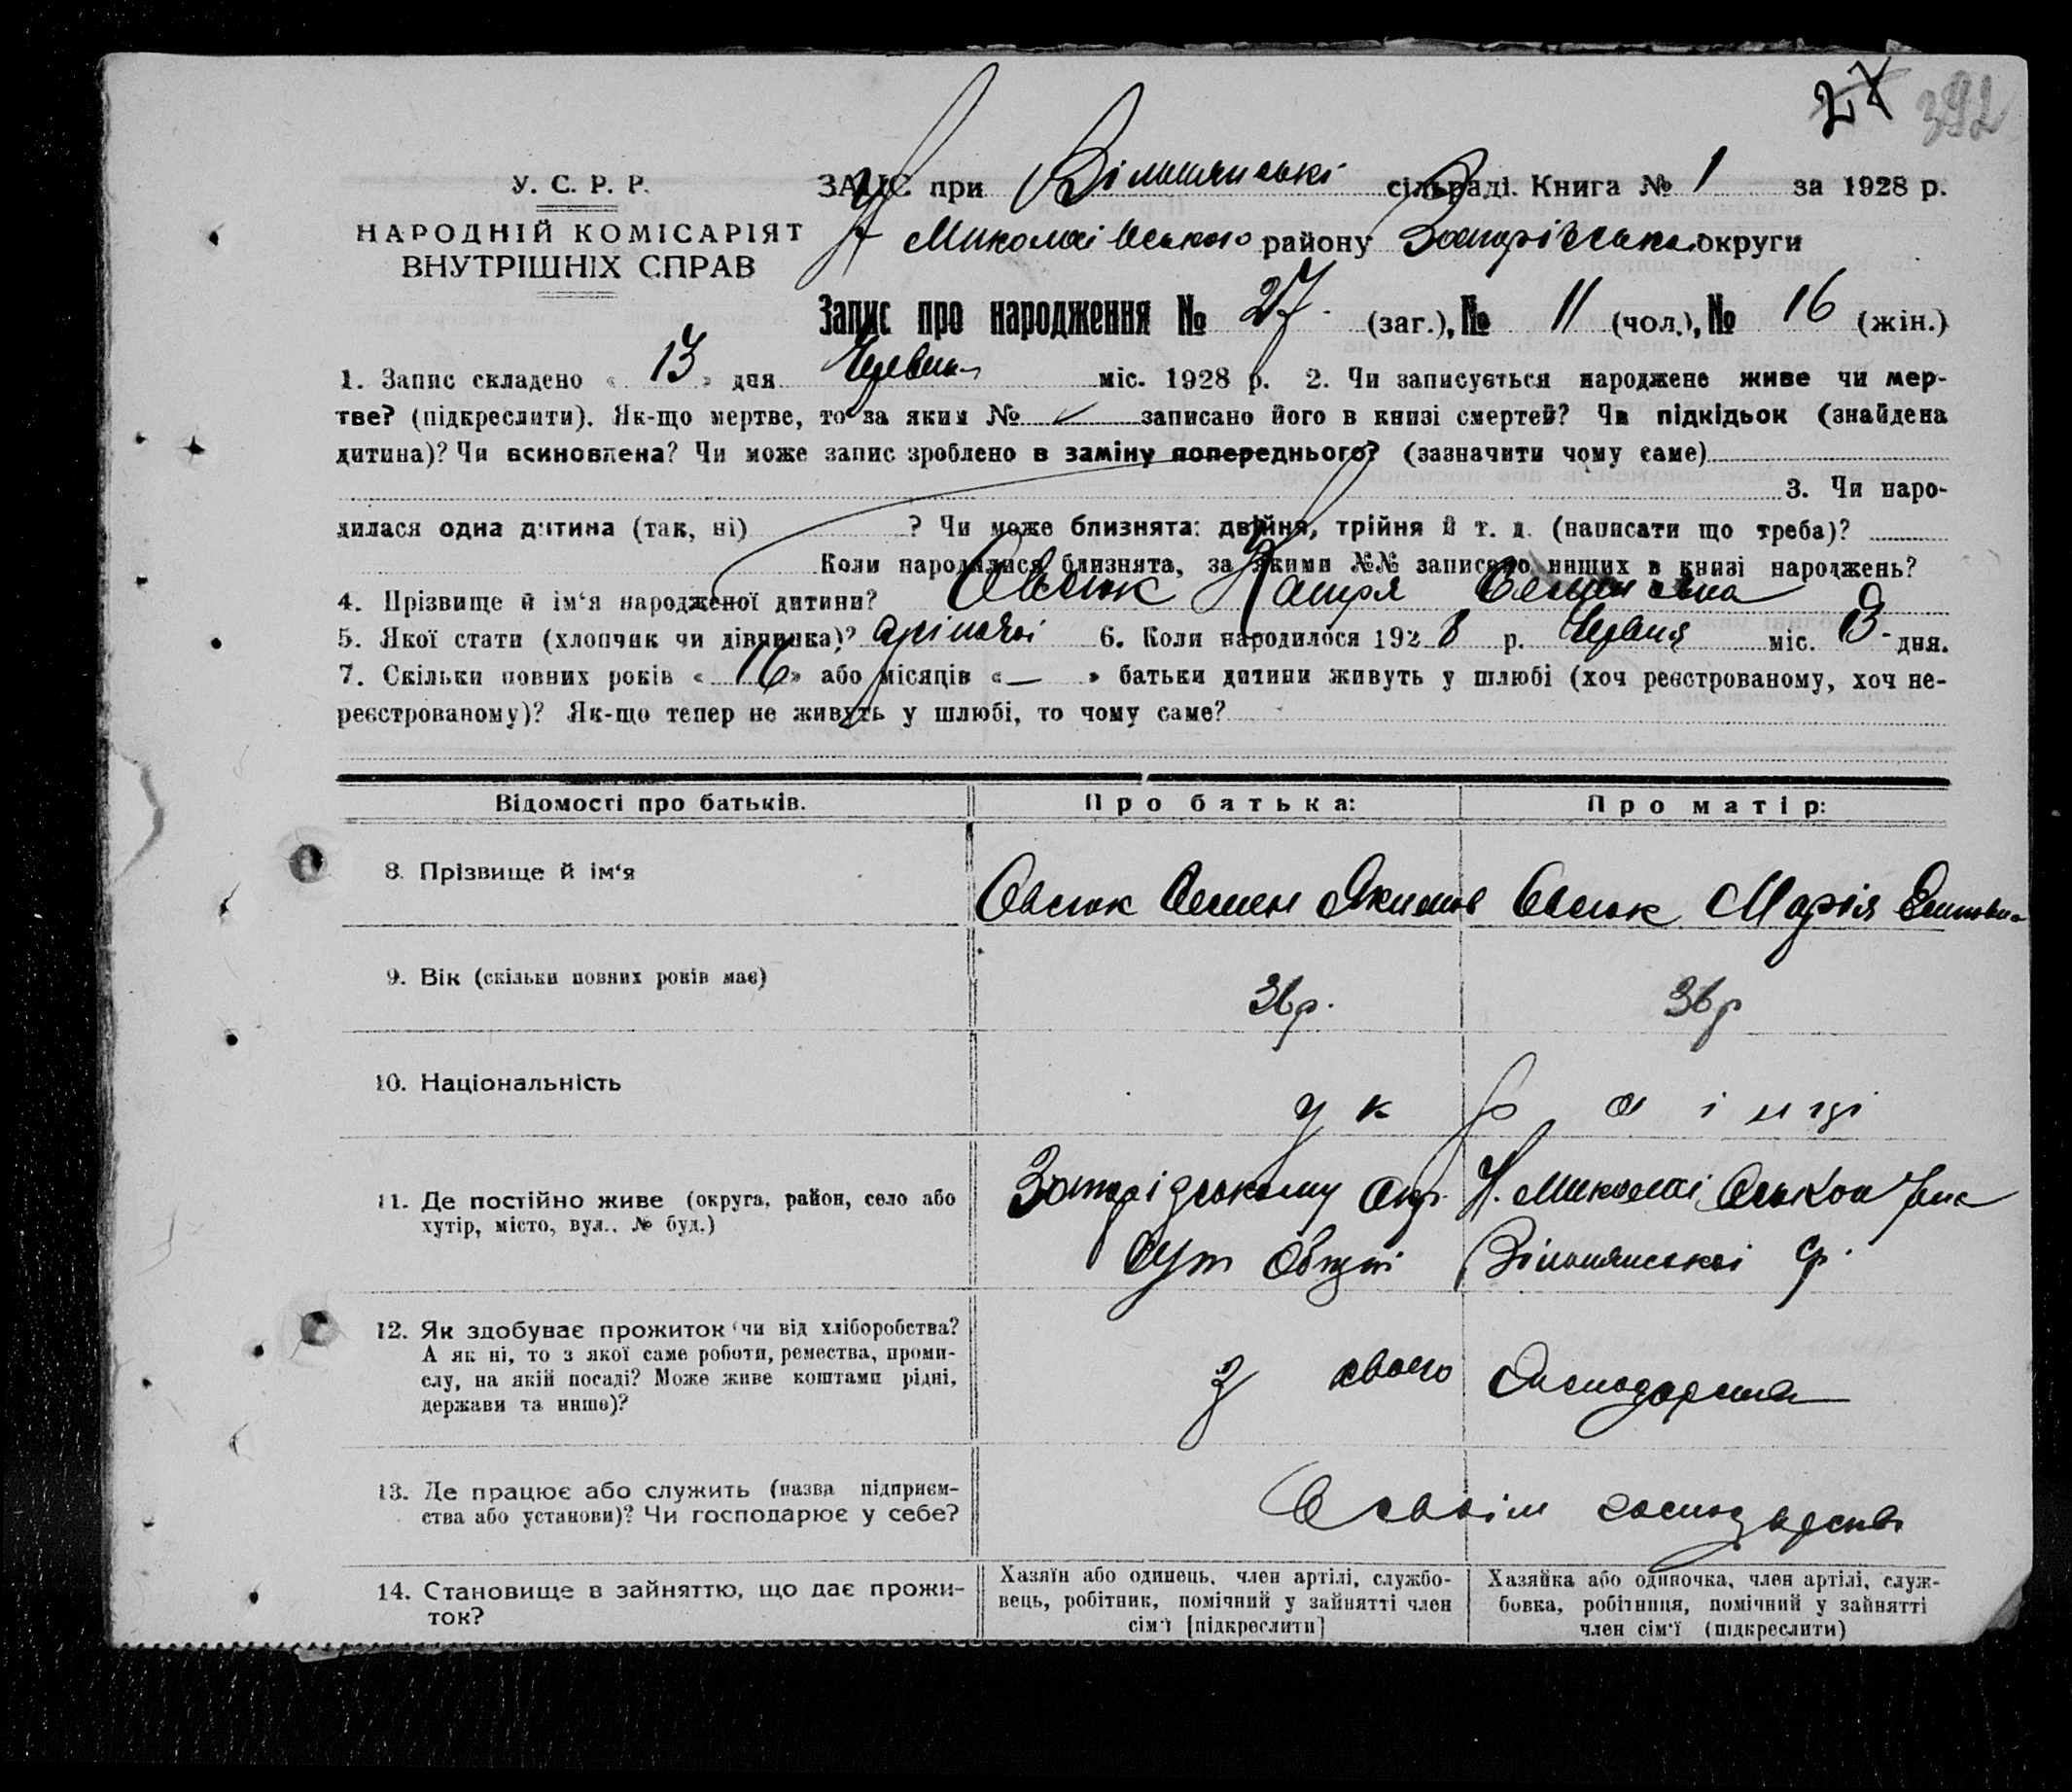 27 392
У. С. Р. Р.
НАРОДНІЙ КОМІСАРІЯТ
ВНУТРІШНІХ СПРАВ
ЗАЦС при Вільнянські сільраді. Книга № 1 за 1928 р.
Миколаївського району округи
Запис про народження № 27 (заг.), № 11 (чол.), № 16 (жін.)
1. Запис складено « 13 » дня Червня міс. 1928 р. 2. Чи записується народжене живе чи мер-
тве? (підкреслити). Як-що мертве, то за яким № записано його в книзі смертей? Чи підкідьок (знайдена
дитина)? Чи всиновлена? Чи може запис зроблено в заміну попереднього? (зазначити чому саме)
3. Чи наро-
дилася одна дитина (так, ні) ? Чи може близнята: двійня, трійня й т. д. (написати що треба)?
Коли народилися близнята, за якими №№ записано инших в книзі народжень?
4. Прізвище й ім‘я народженої дитини? Овсюк Катря Семенівна
5. Якої стати (хлопчик чи дівчинка)? 6. Коли народилося 192 8 р. Червня міс. дня.
7. Скільки повних років « 16 » або місяців « — » батьки дитини живуть у шлюбі (хоч реєстрованому, хоч не-
реєстрованому)? Як-що тепер не живуть у шлюбі, то чому саме?
Відомості про батьків. Про батька: Про матір:
8. Прізвище й ім‘я Овсюк Семен Якимов Овсюк Марія
9. Вік (скільки повних років має) 36 р. 36 р
10. Національність українці
11. Де постійно живе (округа, район, село або
хутір, місто, вул., № буд.)
Вільнянської
12. Як здобуває прожиток (чи від хліборобства?
А як ні, то з якої саме роботи, ремества, проми-
слу, на якій посаді? Може живе коштами рідні,
держави та инше)?
з свого господарства
13. Де працює або служить (назва підприєм-
ства або установи)? Чи господарює у себе?
В своїм господарстві
14. Становище в зайняттю, що дає прожи-
ток?
Хазяїн або одинець, член артілі, службо-
вець, робітник, помічний у зайнятті член
сім‘ї [підкреслити]
Хазяйка або одиночка, член артілі, служ-
бовка, робітниця, помічний у зайнятті
член сім‘ї (підкреслити)